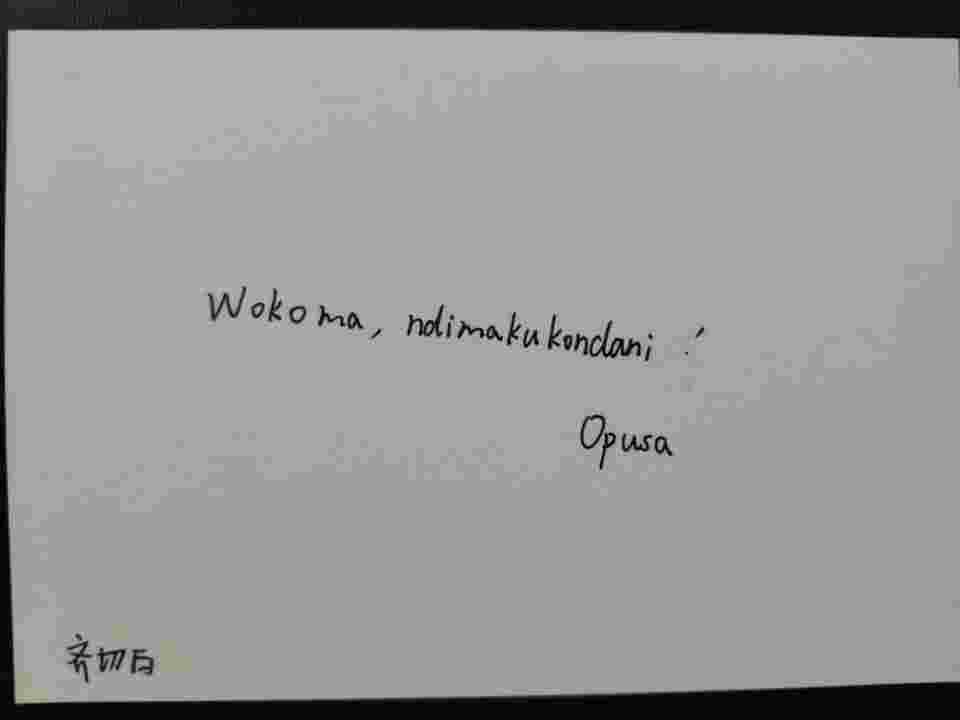 Wokoma, ndimakukondani !
Opusa
齐切瓦